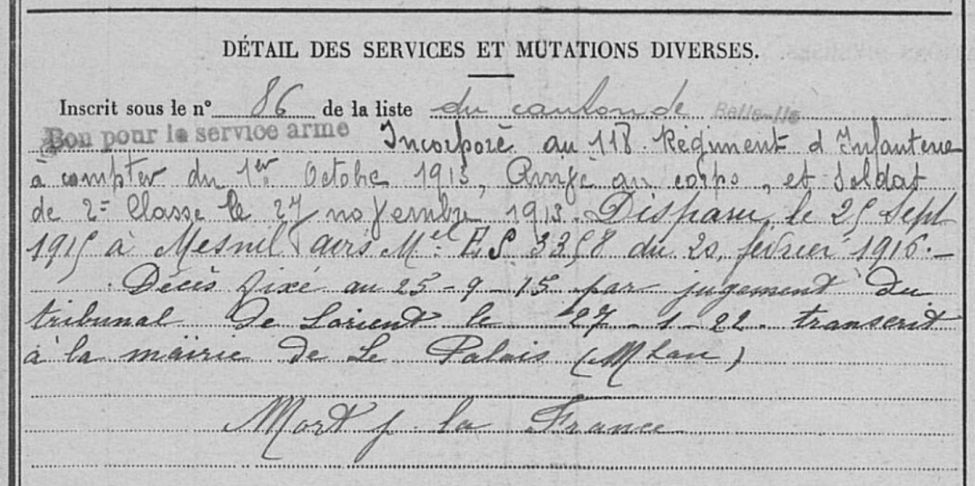 DÉTAIL DES SERVICES ET MUTATIONS DIVERSES.
Inscrit sous le n° 86 de la liste du canton de Belle-Ile
Bon pour le service armé Incorporé au 118 Régiment d'Infanterie
à compter du 1er Octobre 1913, Arrivé au corps, et soldat
de 2e Classe le 27 novembre 1913. Disparu le 25 Sept
1915 à Mesnil avis Mel ES 3358 du 20 février 1916.
Décès fixé au 25-9-15 par jugement du
tribunal de Lorient le 27-1-22. transcrit
à la mairie de Le Palais (Mhan)
Mort p. la France